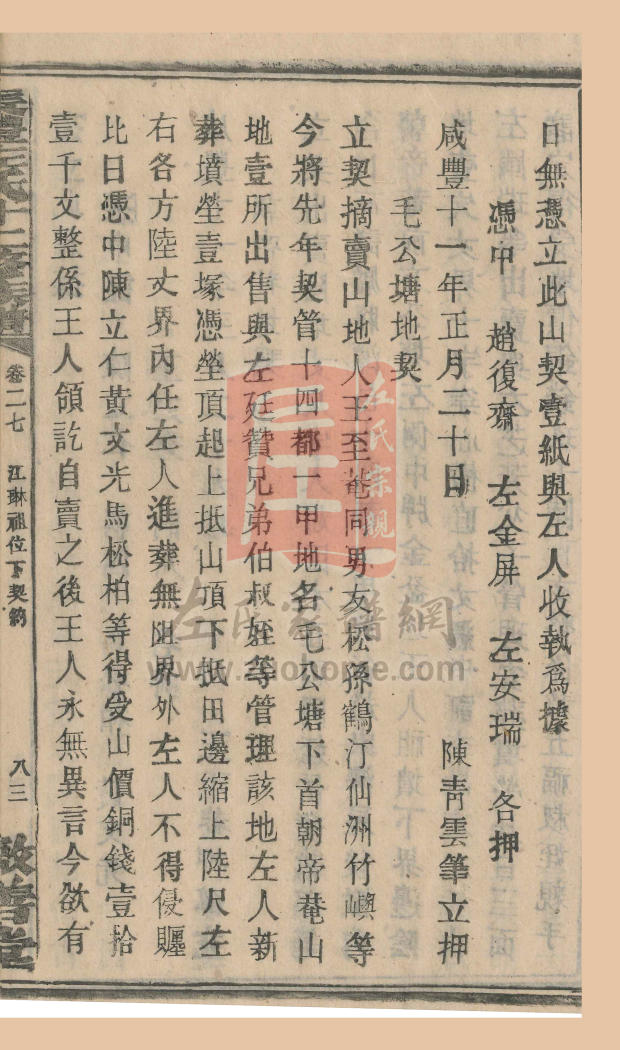 日無憑立此山契壹紙與左人收執爲據
憑中　趙復齋　左金屏　左安瑞　各押
咸豐十一年正月二十日　陳青雲筆立押
毛公塘地契
立契摘賣山地人王至菴同男友松孫鶴汀仙洲竹嶼等
今將先年契管十四都一甲地名毛公塘下首朝帝菴山
地壹所出售與左廷贊兄弟伯叔姪等管理該地左人新
葬墳塋壹塚憑塋頂起上抵山頂下抵田邊縮上陸尺左
右各方陸丈界內任左人進葬無阻界外左人不得侵𧸘
比日憑中陳立仁黃文光馬松柏等得受山價銅錢壹拾
壹千文整係王人領訖自賣之後王人永無異言今欲有
卷二七　江琳祖位下契約　八三
左氏宗親
左氏宗譜網
www.zuohome.com